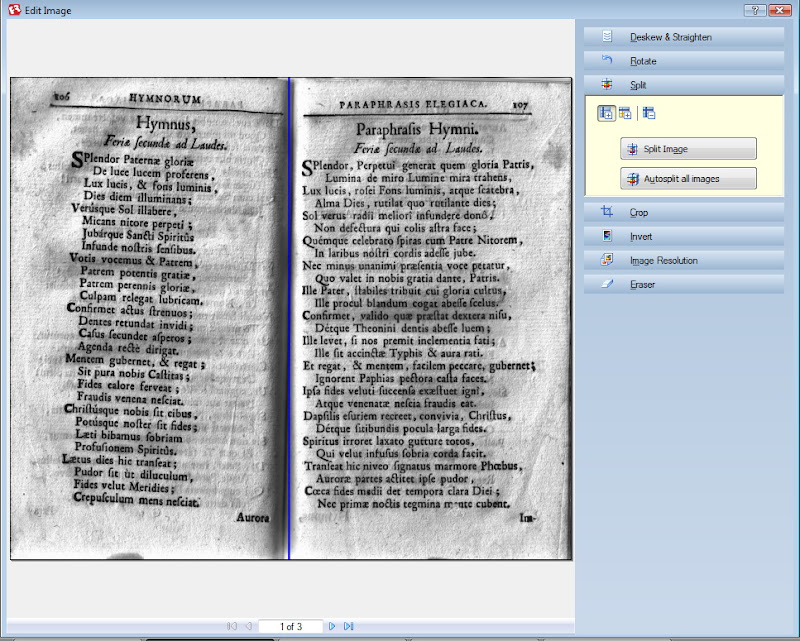 Edit Image
106 HYMNORUM
Hymnus,
Feriæ ſecundæ ad Laudes.
SPlendor Paternæ gloriæ
De luce lucem proferens,
Lux lucis, & fons luminis,
Dies diem illuminans;
Verúsque Sol illabere,
Micans nitore perpeti;
Jubárque Sancti Spiritûs
Infunde noſtris ſenſibus.
Votis vocemus & Patrem,
Patrem potentis gratiæ,
Patrem perennis gloriæ,
Culpam relegat lubricam.
Confirmet actus ſtrenuos;
Dentes retundat invidi;
Caſus ſecundet aſperos;
Agenda rectè dirigat.
Mentem gubernet, & regat;
Sit pura nobis Caſtitas;
Fides calore ferveat;
Fraudis venena neſciat.
Chriſtúsque nobis ſit cibus,
Potúsque noſter ſit fides;
Læti bibamus ſobriam
Profuſionem Spiritûs.
Lætus dies hic tranſeat;
Pudor ſit ùt diluculum,
Fides velut Meridies;
Crepuſculum mens neſciat.
Aurora
PARAPHRASIS ELEGIACA. 107
Paraphraſis Hymni.
Feriæ ſecundæ ad Laudes.
SPlendor, Perpetuì generat quem gloria Patris,
Lumina de miro Lumine mira trahens,
Lux lucis, roſei Fons luminis, atque ſcatebra,
Alma Dies, rutilat quo rutilante dies;
Sol verus radii meliori infundere dono,
Non defectura qui colis aſtra face;
Quémque celebrato ſpiras cum Patre Nitorem,
In laribus noſtri cordis adeſſe jube.
Nec minus unanimi præſentia voce petatur,
Quo valet in nobis gratia dante, Patris.
Ille Pater, ſtabiles tribuit cui gloria cultus,
Ille procul blandum cogat abeiſſe ſcelus.
Confirmet, valido quæ præſtat dextera niſu,
Détque Theonini dentis abeſſe luem;
Ille levet, ſi nos premit inclementia fati;
Ille ſit accinctæ Typhis & aura rati.
Et regat, & mentem, facilem peccare, gubernet;
Ignorent Paphias pectora caſta faces.
Ipſa fides veluti ſuccenſa exæſtuet igni,
Atque venenatæ neſcia fraudis eat.
Dapſilis eſuriem recreet, convivia, Chriſtus,
Détque ſitibundis pocula larga fides.
Spiritus irroret laxato gutture totos,
Qui velut infuſus ſobria corda facit.
Tranſeat hic niveo ſignatus marmore Phœbus,
Auroræ partes actitet ipſe pudor,
Cœca fides medii det tempora clara Diei;
Nec primæ noctis tegmina mente cubent.
Im-
Deskew & Straighten
Rotate
Split
Split Image
Autosplit all images
Crop
Invert
Image Resolution
Eraser
1 of 3